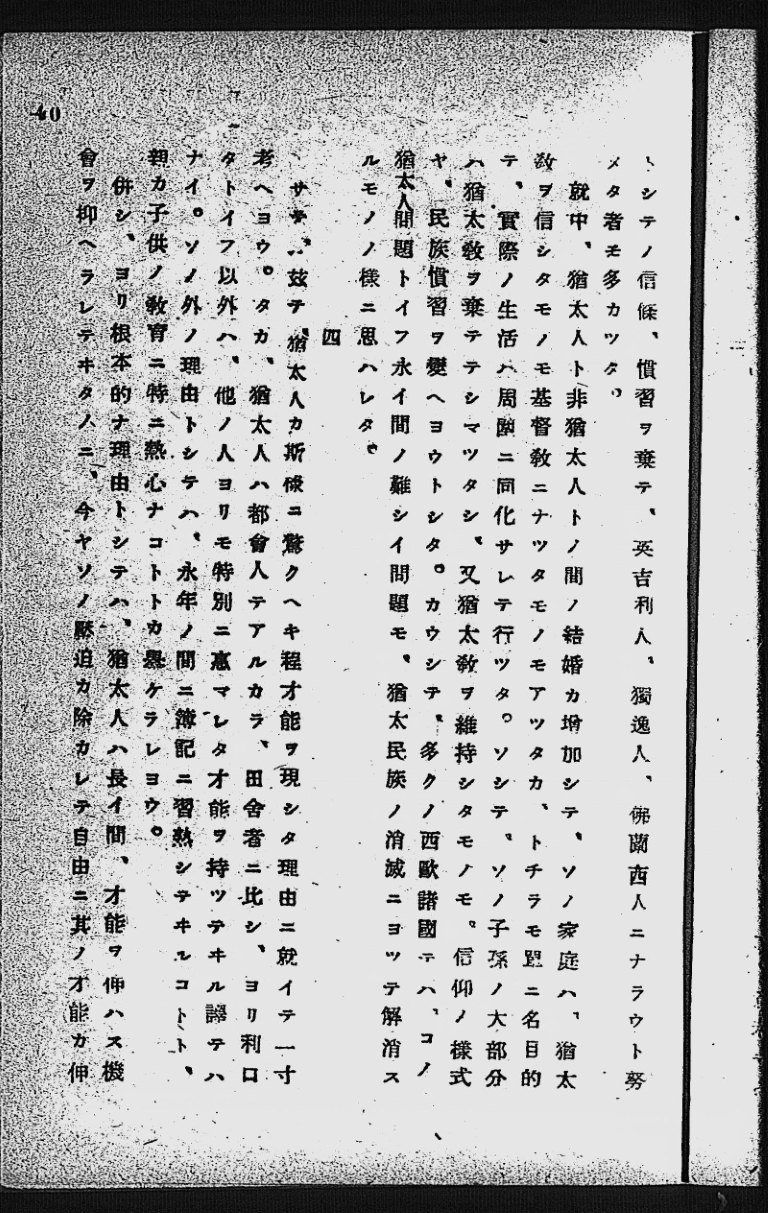 トシテノ信條、慣習ヲ棄テ、英吉利人、獨逸人、佛蘭西人ニナラウト努
メタ者モ多カツタ。
就中、猶太人ト非猶太人トノ間ノ結婚カ増加シテ、ソノ家庭ハ、猶太
敎ヲ信シタモノモ基督敎ニナツタモノモアツタカ、トチラモ單ニ名目的
テ、實際ノ生活ハ周圍ニ同化サレテ行ツタ。ソシテ、ソノ子孫ノ大部分
ハ猶太敎ヲ棄テテシマツタシ、又猶太敎ヲ維持シタモノモ。信仰ノ樣式
ヤ、民族慣習ヲ變ヘヨウトシタ。カウシテ、多クノ西歐諸國テハ、コノ
猶太人問題トイフ永イ間ノ難シイ問題モ、猶太民族ノ消滅ニヨツテ解消ス
ルモノノ樣ニ思ハレタ。
四
サテ、玆テ、猶太人カ斯樣ニ驚クヘキ程才能ヲ現シタ理由ニ就イテ一寸
考ヘヨウ。タカ、猶太人ハ都會人テアルカラ、田舍者ニ比シ、ヨリ利口
タトイフ以外ハ、他ノ人ヨリモ特別ニ惠マレタ才能ヲ持ツテヰル譯テハ
ナイ。ソノ外ノ理由トシテハ、永年ノ間ニ簿記ニ習熟シテヰルコトト、
親カ子供ノ敎育ニ特ニ熱心ナコトトカ擧ケラレヨウ。
併シ、ヨリ根本的ナ理由トシテハ、猶太人ハ長イ間、才能ヲ伸ハス機
會ヲ抑ヘラレテヰタノニ、今ヤソノ壓迫カ除カレテ自由ニ其ノ才能カ伸
40